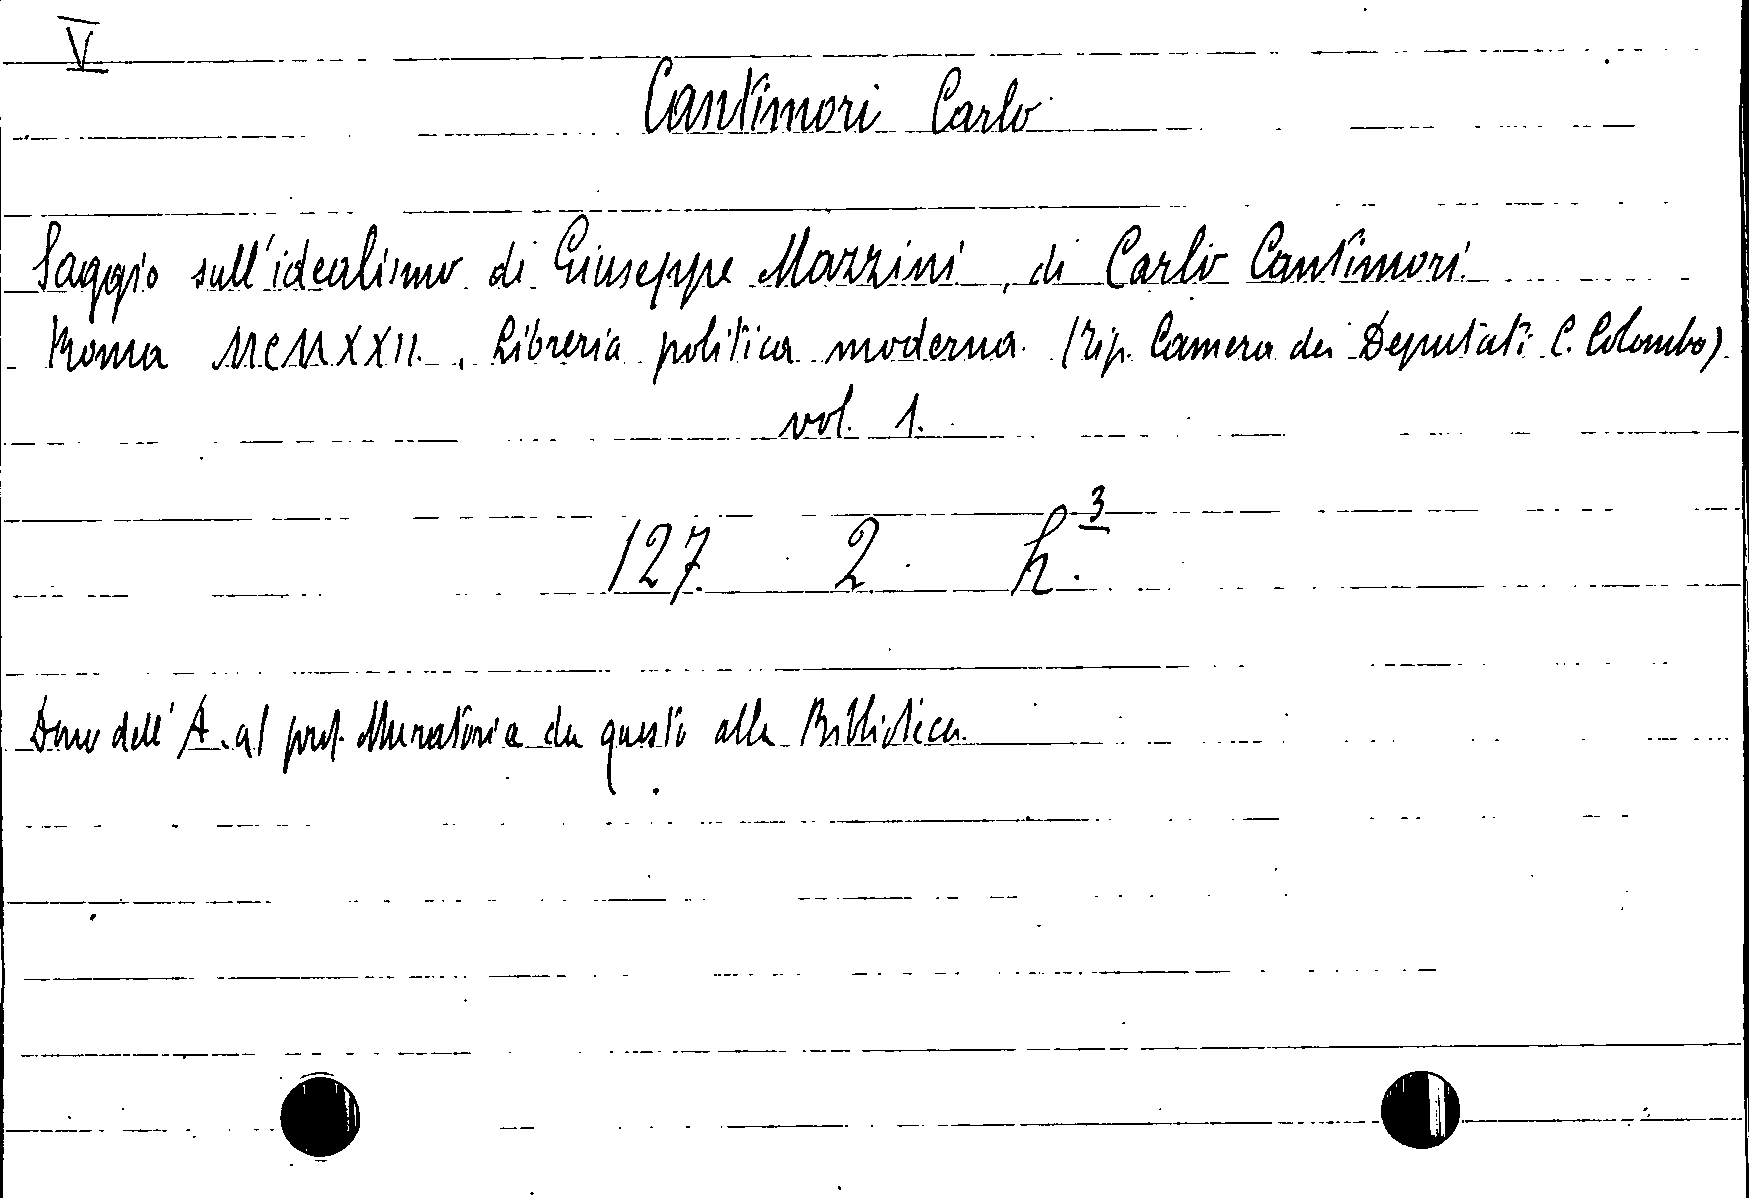 V
Cantimori Carlo
Saggio sull'idealismo di Giuseppe Mazzini, di Carlo Cantimori.
Roma MCMXXII., Libreria politica moderna. (Tip. Camera dei Deputati C. Colombo)
vol. 1.
127. 2. h.3
Dono dell'A. al prof. Muratori e da questo alla Biblioteca.